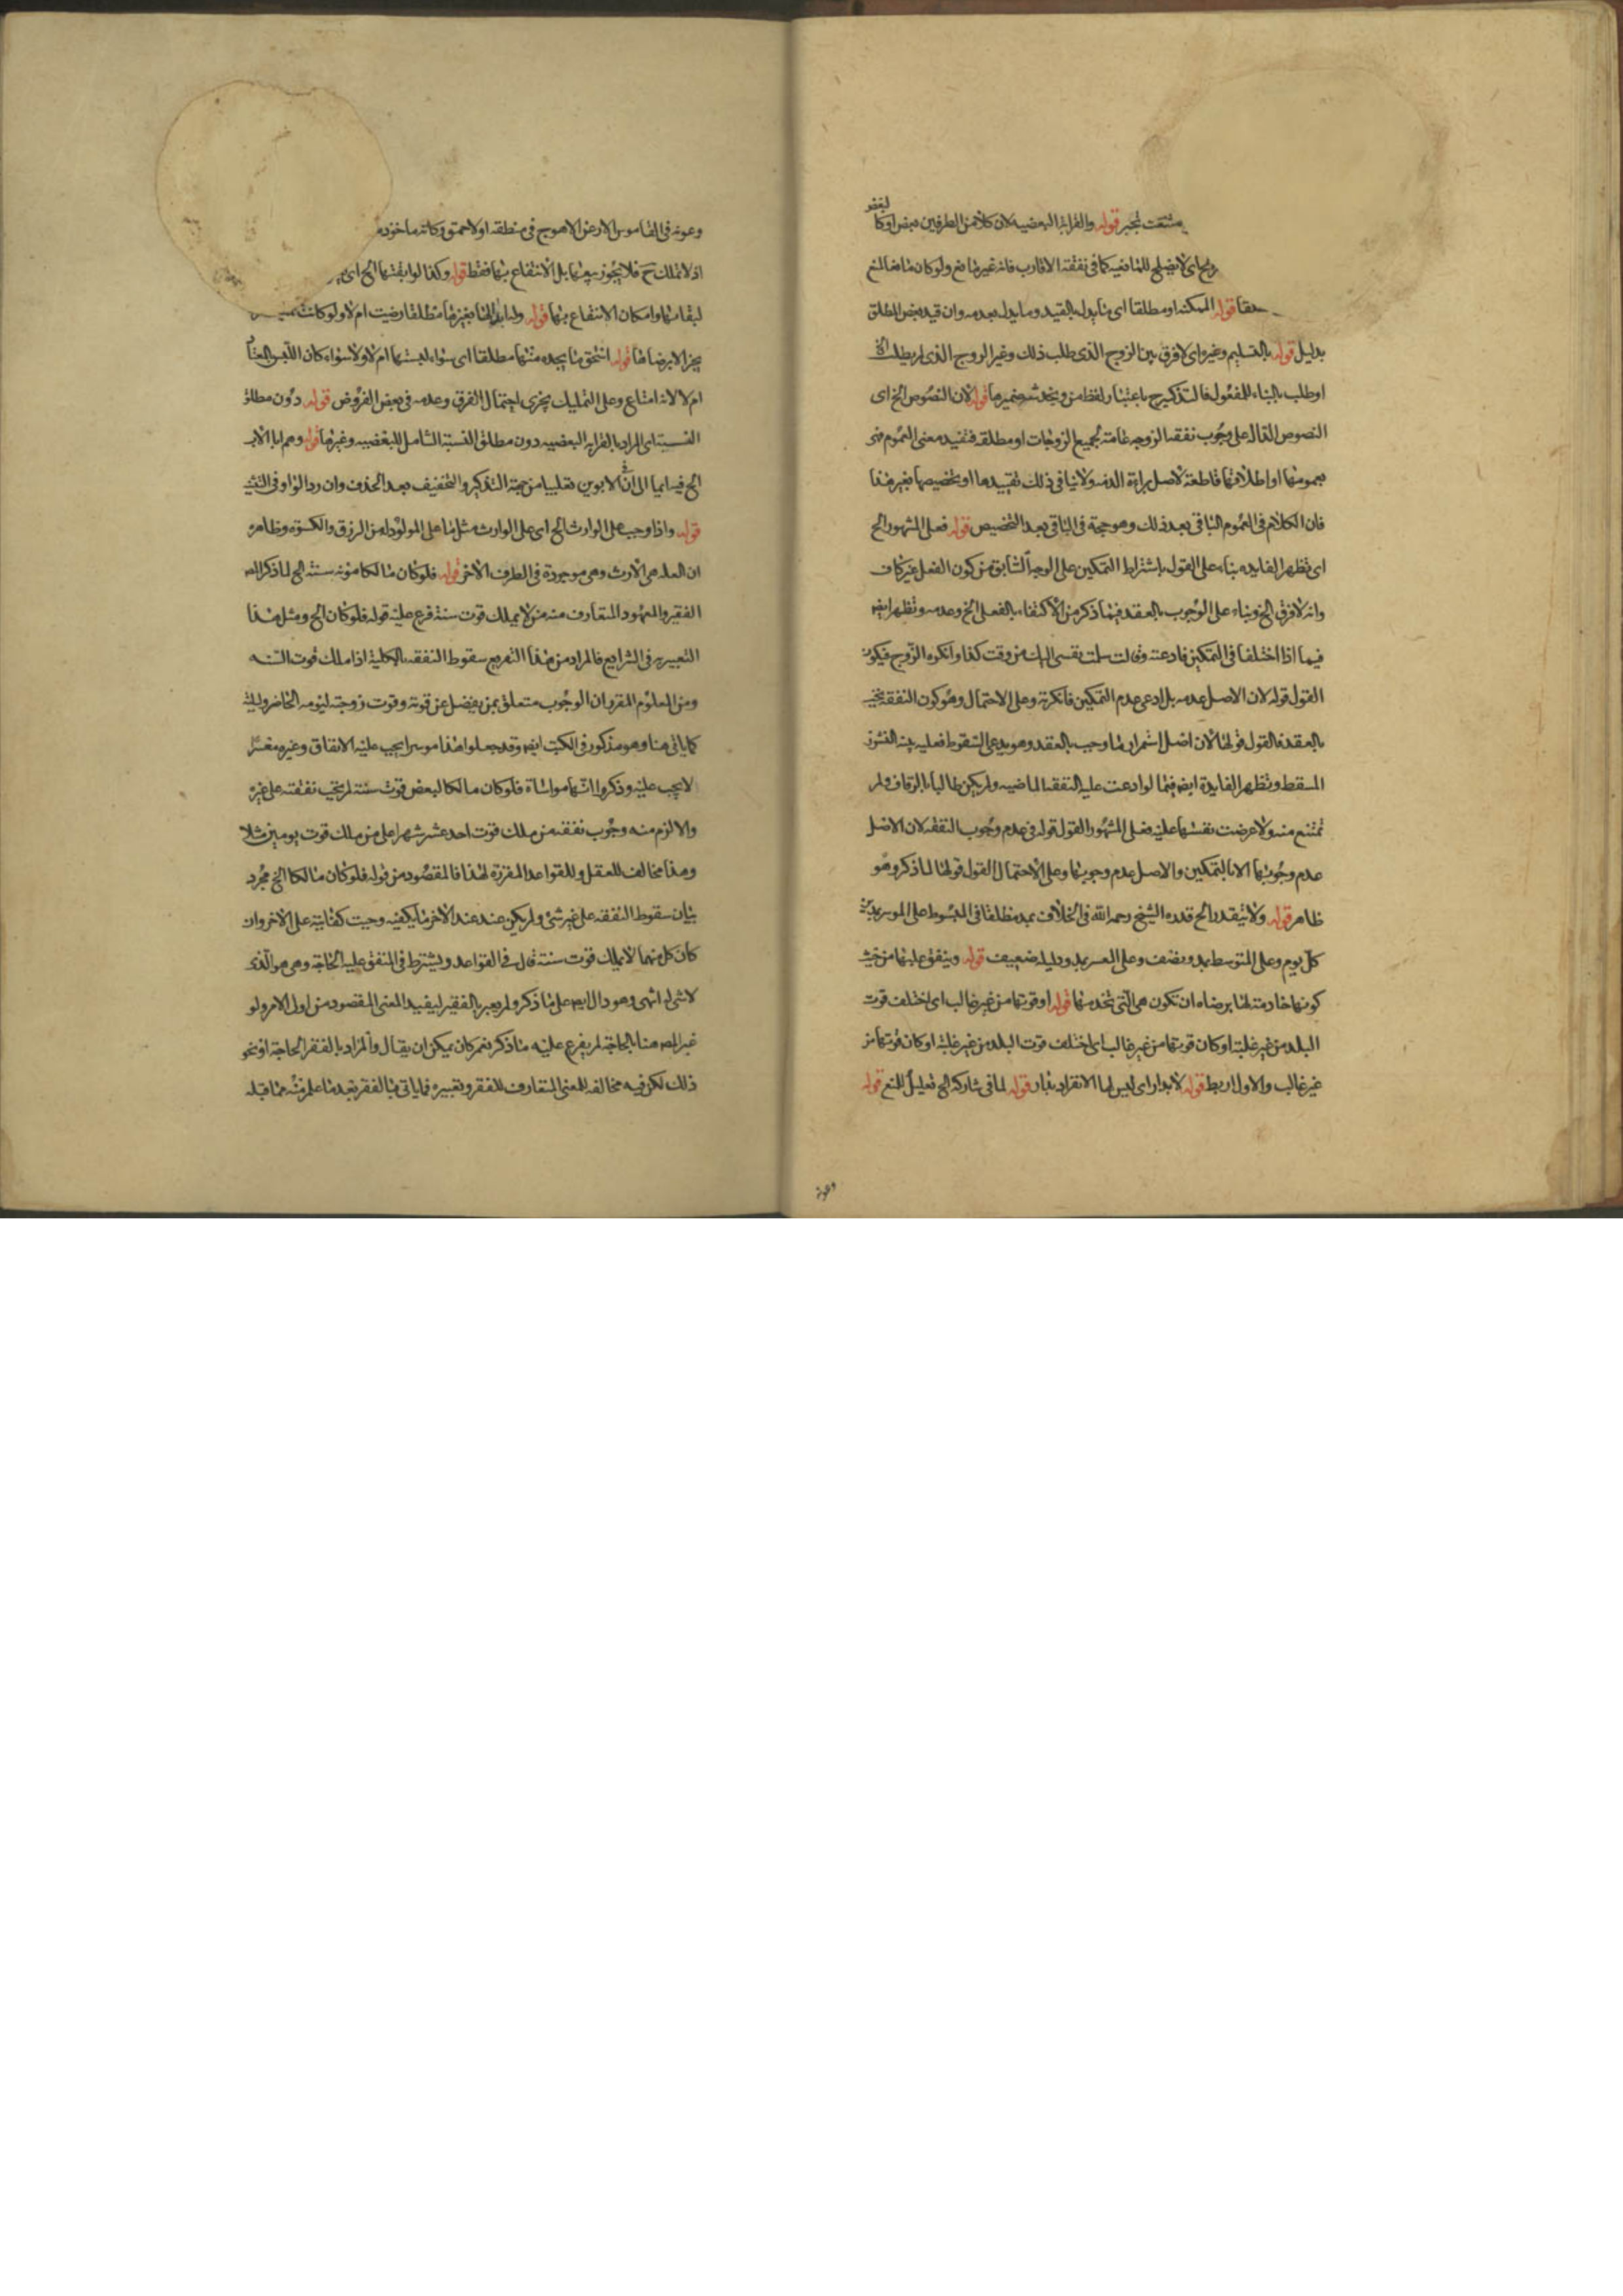 مستحقة تجبر قوله والقرابة البعضيه لان كلا من الطرفين بعض او كا
اي لا يصلح للمانعيه كما في نفقة الاقارب فانه غير مانع ولو كان مانعا لمنع
قوله الممكنه او مطلقا اي ما يدل بالقيد وما يدل بعدمه وان قيد بعض المطلق
بدليل قوله بالتسليم وغيره اي لا فرق بين الزوج الذي طلب ذلك وغير الزوج الذي لم يطلب
او طلب بالبناء للمفعول فالتذكير ح باعتبار لفظ من ضميرها قوله لان النصوص الخ اي
النصوص الداله على وجوب نفقه الزوجه عامة لجميع الزوجات او مطلقه فتفيد معنى العموم فهو
بعمومها او اطلاقها قاطعة لاصل براءة الذمه ولا ينافي ذلك تقييدها او تخصيصها بغير هذا
فان الكلام في العموم الباقي بعد ذلك وهو حجة في الباقي بعد التخصيص قوله فعلى المشهور الخ
اي تظهر الفايده بناء على القول باشتراط التمكين على الوجه السابق من كون الفعل غير كاف
وانه لا فرق الخ وبناء على الوجوب بالعقد فيما ذكر من الاكتفاء بالفعل الخ وعدمه وتظهر ايضا
فيما اذا اختلفا في التمكين فادعته وقالت سلمت نفسي اليك من وقت كذا وانكره الزوج فيكون
القول قوله لان الاصل عدمه بل ادعى عدم التمكين فانكرته وعلى الاحتمال وهو كون النفقه تجب
بالعقد فالقول قولها لان اصل استمرار ما وجب بالعقد وهو يدعي السقوط فعليه بينه النشوز
المسقط وتظهر الفايدة ايضا فيما لو ادعت عليه النفقه الماضيه ولم يكن طالبها بالزفاف ولم
تمتنع منه ولا عرضت نفسها عليه فعلى المشهور القول قوله في عدم وجوب النفقه لان الاصل
عدم وجوبها الا بالتمكين والاصل عدم وجوبها وعلى الاحتمال القول قولها لما ذكر وهو
ظاهر قوله ولا يتقدر الخ قدره الشيخ رحمه الله في الخلاف بمد مطلقا في المبسوط على الموسر بمدين
كل يوم وعلى المتوسط بمد ونصف وعلى المعسر بمد ودليله ضعيف قوله وينفق عليها من حيث
كونها خادمته لها برضاه ان تكون هي التي تخدمها قوله او قوتها من غير غالب اي اختلف قوت
البلد من غير غلبة او كان قوتها من غير غالب اي اختلف قوت البلد من غير غلبة او كان قوتها من
غير غالب والاول اربط قوله لا بدار اي ليس لها الانفراد بدار قوله لما في شاركة الخ تعليل للمنع قوله
وعونه
وعونه في القاموس الارعن الاهوج في منطقه او الاحمق وكانه ماخوذ
اذ لا تملك ح فلا يجوز بيعها بل الانتفاع بها فقط قوله وكذا لو ابقتها الخ اي
لبقائها وامكان الانتفاع بها قوله وله ابدالها بغيرها مطلقا رضيت ام لا ولو كانت
يجز الا برضاها قوله استحق ما يجده منها مطلقا اي سواء لبستها ام لا وسواء كان اللبس
ام لا لانه امتاع وعلى التمليك يجزي احتمال الفرق وعدمه في بعض الفروض قوله دون مطلق
النسبة اي المراد بالقرابه البعضيه دون مطلق النسبة الشامل للبعضيه وغيرها قوله وهم ابا الاب
الخ فيه ايما الى ان الابوين تغليبا من جهة التذكير والتخفيف بعد الحذف وان رد الواو في التثنيه
قوله واذا وجب على الوارث الخ اي على الوارث مثل ما على المولود له من الرزق والكسوة وظاهره
ان العله هي الارث وهي موجودة في الطرف الاخر قوله فلو كان مالكا مؤنه سنته الخ لما ذكر المص
الفقير والمعهود المتعارف منه من لا يملك قوت سنته فرع عليه قوله فلو كان الخ ومثل هذا
التعبير في الشرايع فالمراد من هذا التفريع سقوط النفقه بالكلية اذا ملك قوت السنه
ومن المعلوم المقرر ان الوجوب متعلق بمن يفضل عن قوته وقوت زوجته ليومه الحاضر وليلته
كما ياتي هنا وهو مذكور في الكتب ايضا وقد جعلوا هذا موسرا يجب عليه الانفاق وغيره معسرا
لا يجب عليه وذكروا انها مواساة فلو كان مالكا لبعض قوت سنته لم تجب نفقته على غيره
والا لزم منه وجوب نفقه من ملك قوت احد عشر شهرا على من ملك قوت يومين مثلا
وهذا مخالف للعقل وللقواعد المقررة لهذا فالمقصود من قوله فلو كان مالكا الخ مجرد
بيان سقوط النفقه على غير شئ ولم يكن عند عند الاخر ما يكفيه وجبت كفايته على الاخر وان
كان كل منهما لا يملك قوت سنته قال في القواعد ويشترط في المنفق عليه الحاجة وهي هو الذي
لا شئ له انتهى وهو دال ايضا على ما ذكر ولم يعبر بالفقير ليفيد المعنى المقصود من اول الامر ولو
عبر المص هنا بالحاجة لم يفرع عليه ما ذكر نعم كان يمكن ان يقال والمراد بالفقر الحاجة او نحو
ذلك لكن فيه مخالفه للمعنى المتعارف للفقر وتعبيره فيما ياتي بالفقر بعد ما علم منه مما قبله